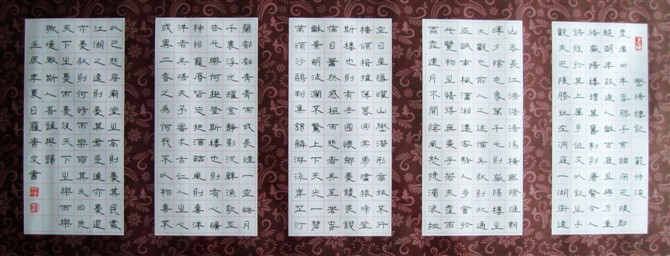 岳陽樓記 范仲淹
慶曆四年春滕子京謫守巴陵郡
越明年政通人和百廢具興乃重
修岳陽樓增其舊制刻唐賢今人
詩賦於其上屬予作文以記之予
觀夫巴陵勝狀在洞庭一湖銜遠
山吞長江浩浩湯湯橫無際涯朝
暉夕陰氣象萬千此則岳陽樓之
大觀也前人之述備矣然則北通
巫峽南極瀟湘遷客騷人多會於
此覽物之情得無異乎若夫霪雨
霏霏連月不開陰風怒號濁浪排
空日星隱耀山岳潛形商旅不行
檣傾楫摧薄暮冥冥虎嘯猿啼登
斯樓也則有去國懷鄉憂讒畏譏
滿目蕭然感極而悲者矣至若春
和景明波瀾不驚上下天光一碧
萬頃沙鷗翔集錦鱗游泳岸芷汀
蘭郁郁青青而或長煙一空皓月
千里浮光躍金靜影沉璧漁歌互
答此樂何極登斯樓也則有心曠
神怡寵辱皆忘把酒臨風則喜洋
洋者矣嗟夫予嘗求古仁人之心
或異二者之為何哉不以物喜不
以己悲居廟堂之高則憂其民處
江湖之遠則憂其君是進亦憂退
亦憂然則何時而樂耶其必曰先
天下之憂而憂後天下之樂而樂
歟噫微斯人吾誰與歸
壬辰年夏日羅青文書